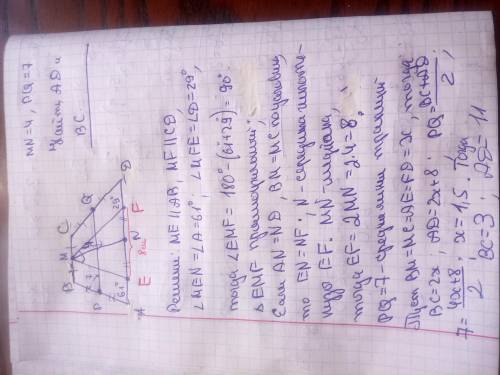 MN=4, PQ=7
Найти AD и
BC.
B M C
P 7 Q
4
61° 29°
A E N F D
8см
Решение: ME||AB, MF||CD,
∠MEN=∠A=61°; ∠MFE=∠D=29°,
тогда ∠EMF=180°-(61+29)=90°.
∆EMF прямоугольный;
Если AN=ND, BM=MC по условию,
то EN=NF; N - середина гипоте-
нузы EF. MN - медиана,
тогда EF=2MN=2·4=8,
PQ=7 - средняя линия трапеции
Пусть BM=MC=AE=FD=x, тогда
BC=2x; AD=2x+8; PQ=BC+AD/2;
7=4x+8/2; x=1,5 Тогда
BC=3; AD=11